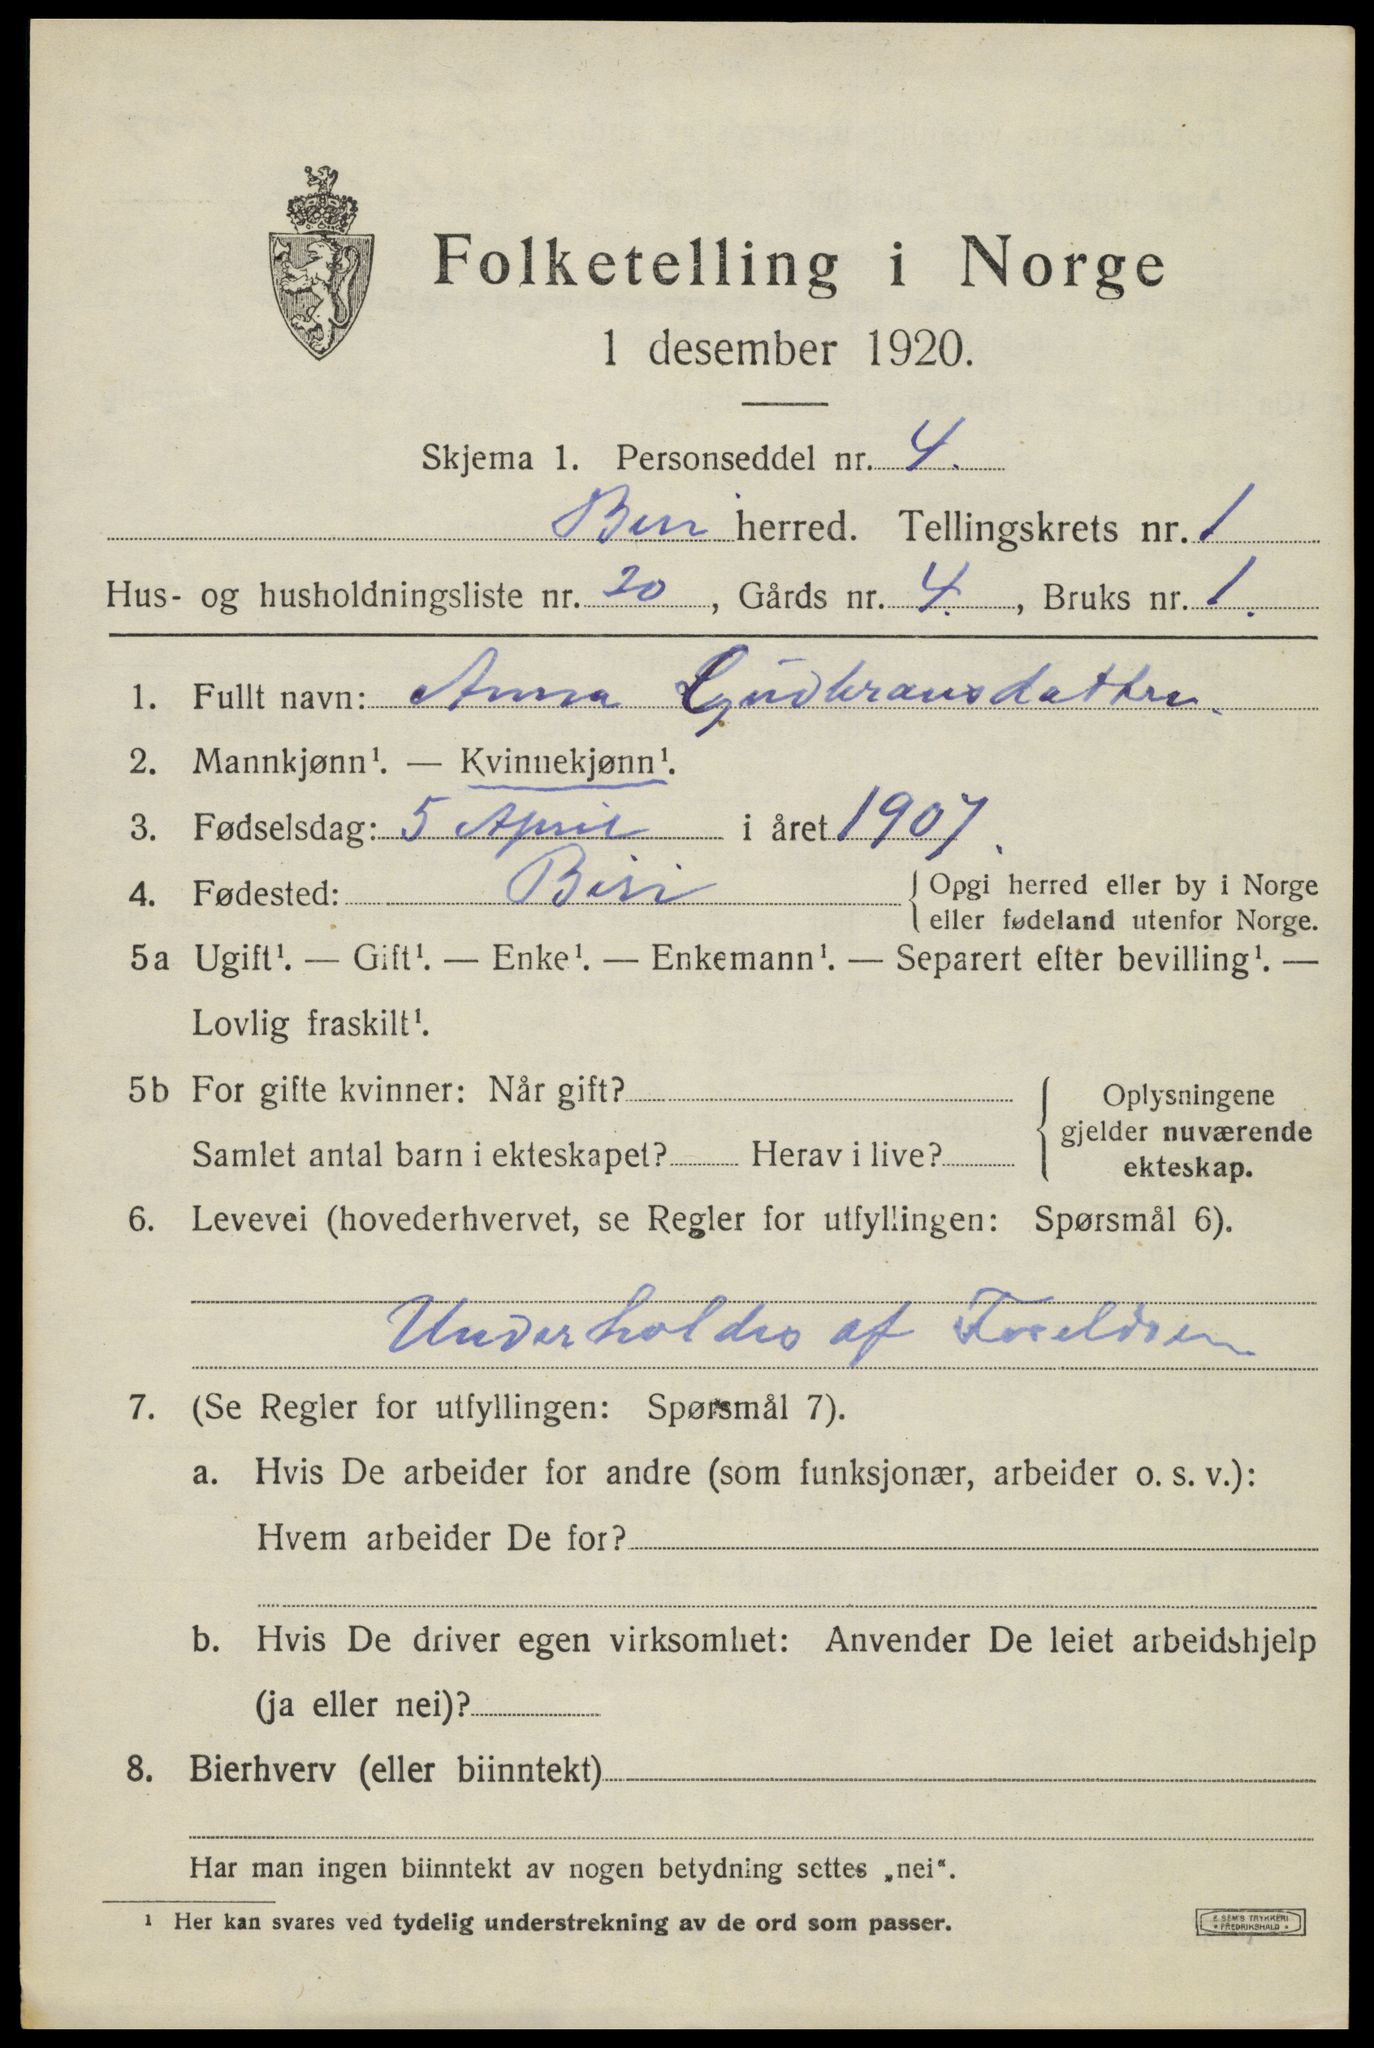 Folketelling i Norge
1 desember 1920.
Skjema 1. Personseddel nr. 4.
Biri herred. Tellingskrets nr. 1
Hus- og husholdningsliste nr. 20, Gårds nr. 4., Bruks nr. 1.
1. Fullt navn: Anna Gudbransdatter.
2. Mannkjønn¹. — Kvinnekjønn¹.
3. Fødselsdag: 5 April i året 1907.
4. Fødested: Biri { Opgi herred eller by i Norge
eller fødeland utenfor Norge.
5a Ugift¹. — Gift¹. — Enke¹. — Enkemann¹. — Separert efter bevilling¹. —
Lovlig fraskilt¹.
5b For gifte kvinner: Når gift? { Oplysningene
gjelder nuværende
Samlet antal barn i ekteskapet? Herav i live? ekteskap.
6. Levevei (hovederhvervet, se Regler for utfyllingen: Spørsmål 6).
Underholdes af Foreldren
7. (Se Regler for utfyllingen: Spørsmål 7).
a. Hvis De arbeider for andre (som funksjonær, arbeider o. s. v.):
Hvem arbeider De for?
b. Hvis De driver egen virksomhet: Anvender De leiet arbeidshjelp
(ja eller nei)?
8. Bierhverv (eller biinntekt)
Har man ingen biinntekt av nogen betydning settes „nei“.
¹ Her kan svares ved tydelig understrekning av de ord som passer.
E. SEM'S TRYKKERI
* FREDRIKSHALD *